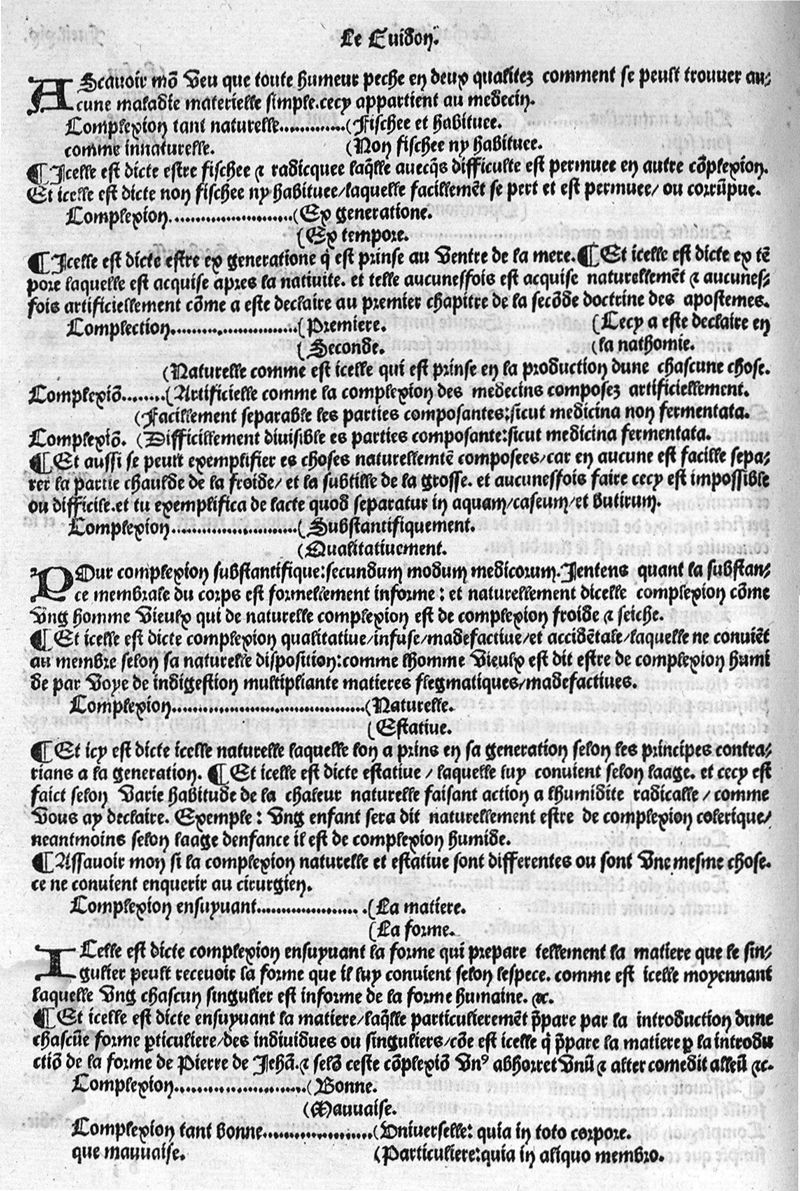 Le Guidon.
AScavoir mõ Veu que toute humeur peche en deux qualitez comment se peult trouver au-
cune maladie materielle simple.cecy appartient au medecin.
Complexion tant naturelle.............(Fischee et habituee.
comme innaturelle. (Non fischee ny habituee.
¶Icelle est dicte estre fischee ⁊ radicquee laq̃lle avecq̃s difficulte est permuee en autre cõplexion.
Et icelle est dicte non fischee ny habituee/laquelle facillemẽt se pert et est permuee/ ou corrũpue.
Complexion.......................(Ex generatione.
(Ex tempore.
¶Icelle est dicte estre ex generatione q̃ est prinse au Ventre de la mere.¶Et icelle est dicte ex tẽ
pore laquelle est acquise apres la nativite. et telle aucunesfois est acquise naturellemẽt ⁊ aucunes-
fois artificiellement cõme a este declaire au premier chapitre de la secõde doctrine des apostemes.
Complection.......................(Premiere. (Cecy a este declaire en
(Seconde. (la nathomie.
(Naturelle comme est icelle qui est prinse en la production dune chascune chose.
Complexiõ........(Artificielle comme la complexion des medecins composez artificiellement.
(Facillement separable les parties composantes:sicut medicina non fermentata.
Complexiõ. (Difficillement divisible es parties composante:sicut medicina fermentata.
¶Et aussi se peult exemplifier es choses naturellemtẽ composees/car en aucune est facille sepa-
rer la partie chaulde de la froide/ et la subtille de la grosse. et aucunesfois faire cecy est impossible
ou difficile.et tu exemplifica de lacte quod separatur in aquam/caseum/et butirum.
Complexion.......................(Substantifiquement.
(Qualitativement.
POur complexion substantifique:secundum modum medicorum.Jentens quant la substan-
ce membrale du corps est formellement informe : et naturellement dicelle complexion cõme
Vng homme Vieulx qui de naturelle complexion est de complexion froide ⁊ seiche.
¶Et icelle est dicte complexion qualitative/infuse/madefactive/et accidẽtale/laquelle ne conviẽt
au membre selon sa naturelle disposition:comme lhomme Vieulx est dit estre de complexion humi
de par Voye de indigestion multipliante matieres flegmatiques/madefactives.
Complexion...................................(Naturelle.
(Estative.
¶Et icy est dicte icelle naturelle laquelle lon a prins en sa generation selon les principes contra-
rians a la generation. ¶Et icelle est dicte estative / laquelle luy convient selon laage. et cecy est
faict selon Varie habitude de la chaleur naturelle faisant action a lhumidite radicalle / comme
Vous ay declaire. Exemple : Vng enfant sera dit naturellement estre de complexion colerique/
neantmoins selon laage denfance il est de complexion humide.
¶Assavoir mon si la complexion naturelle et estative sont differentes ou sont Vne mesme chose.
ce ne convient enquerir au cirurgien.
Complexion ensuyvant................... .(La matiere.
(La forme.
ICelle est dicte complexion ensuyvant la forme qui prepare tellement la matiere que le sin-
gulier peult recevoir la forme que il luy convient selon lespece. comme est icelle moyennant
laquelle Vng chascun singulier est informe de la forme humaine. ⁊c.
¶Et icelle est dicte ensuyvant la matiere/laq̃lle particulieremẽt p̃pare par la introduction dune
chascũe forme ꝑticuliere/des individues ou singuliers/cõe est icelle q̃ p̃pare la matiere ꝑ la introdu
ctiõ de la forme de Pierre de Jehã.⁊ selõ ceste cõplexiõ Vnꝰ abhorret Vnũ ⁊ alter comedit alleũ ⁊c.
Complexion........................(Bonne.
(Mauvaise.
Complexion tant bonne....................(Vniverselle: quia in toto corpore.
que mauvaise. (Particuliere:quia in aliquo membro.